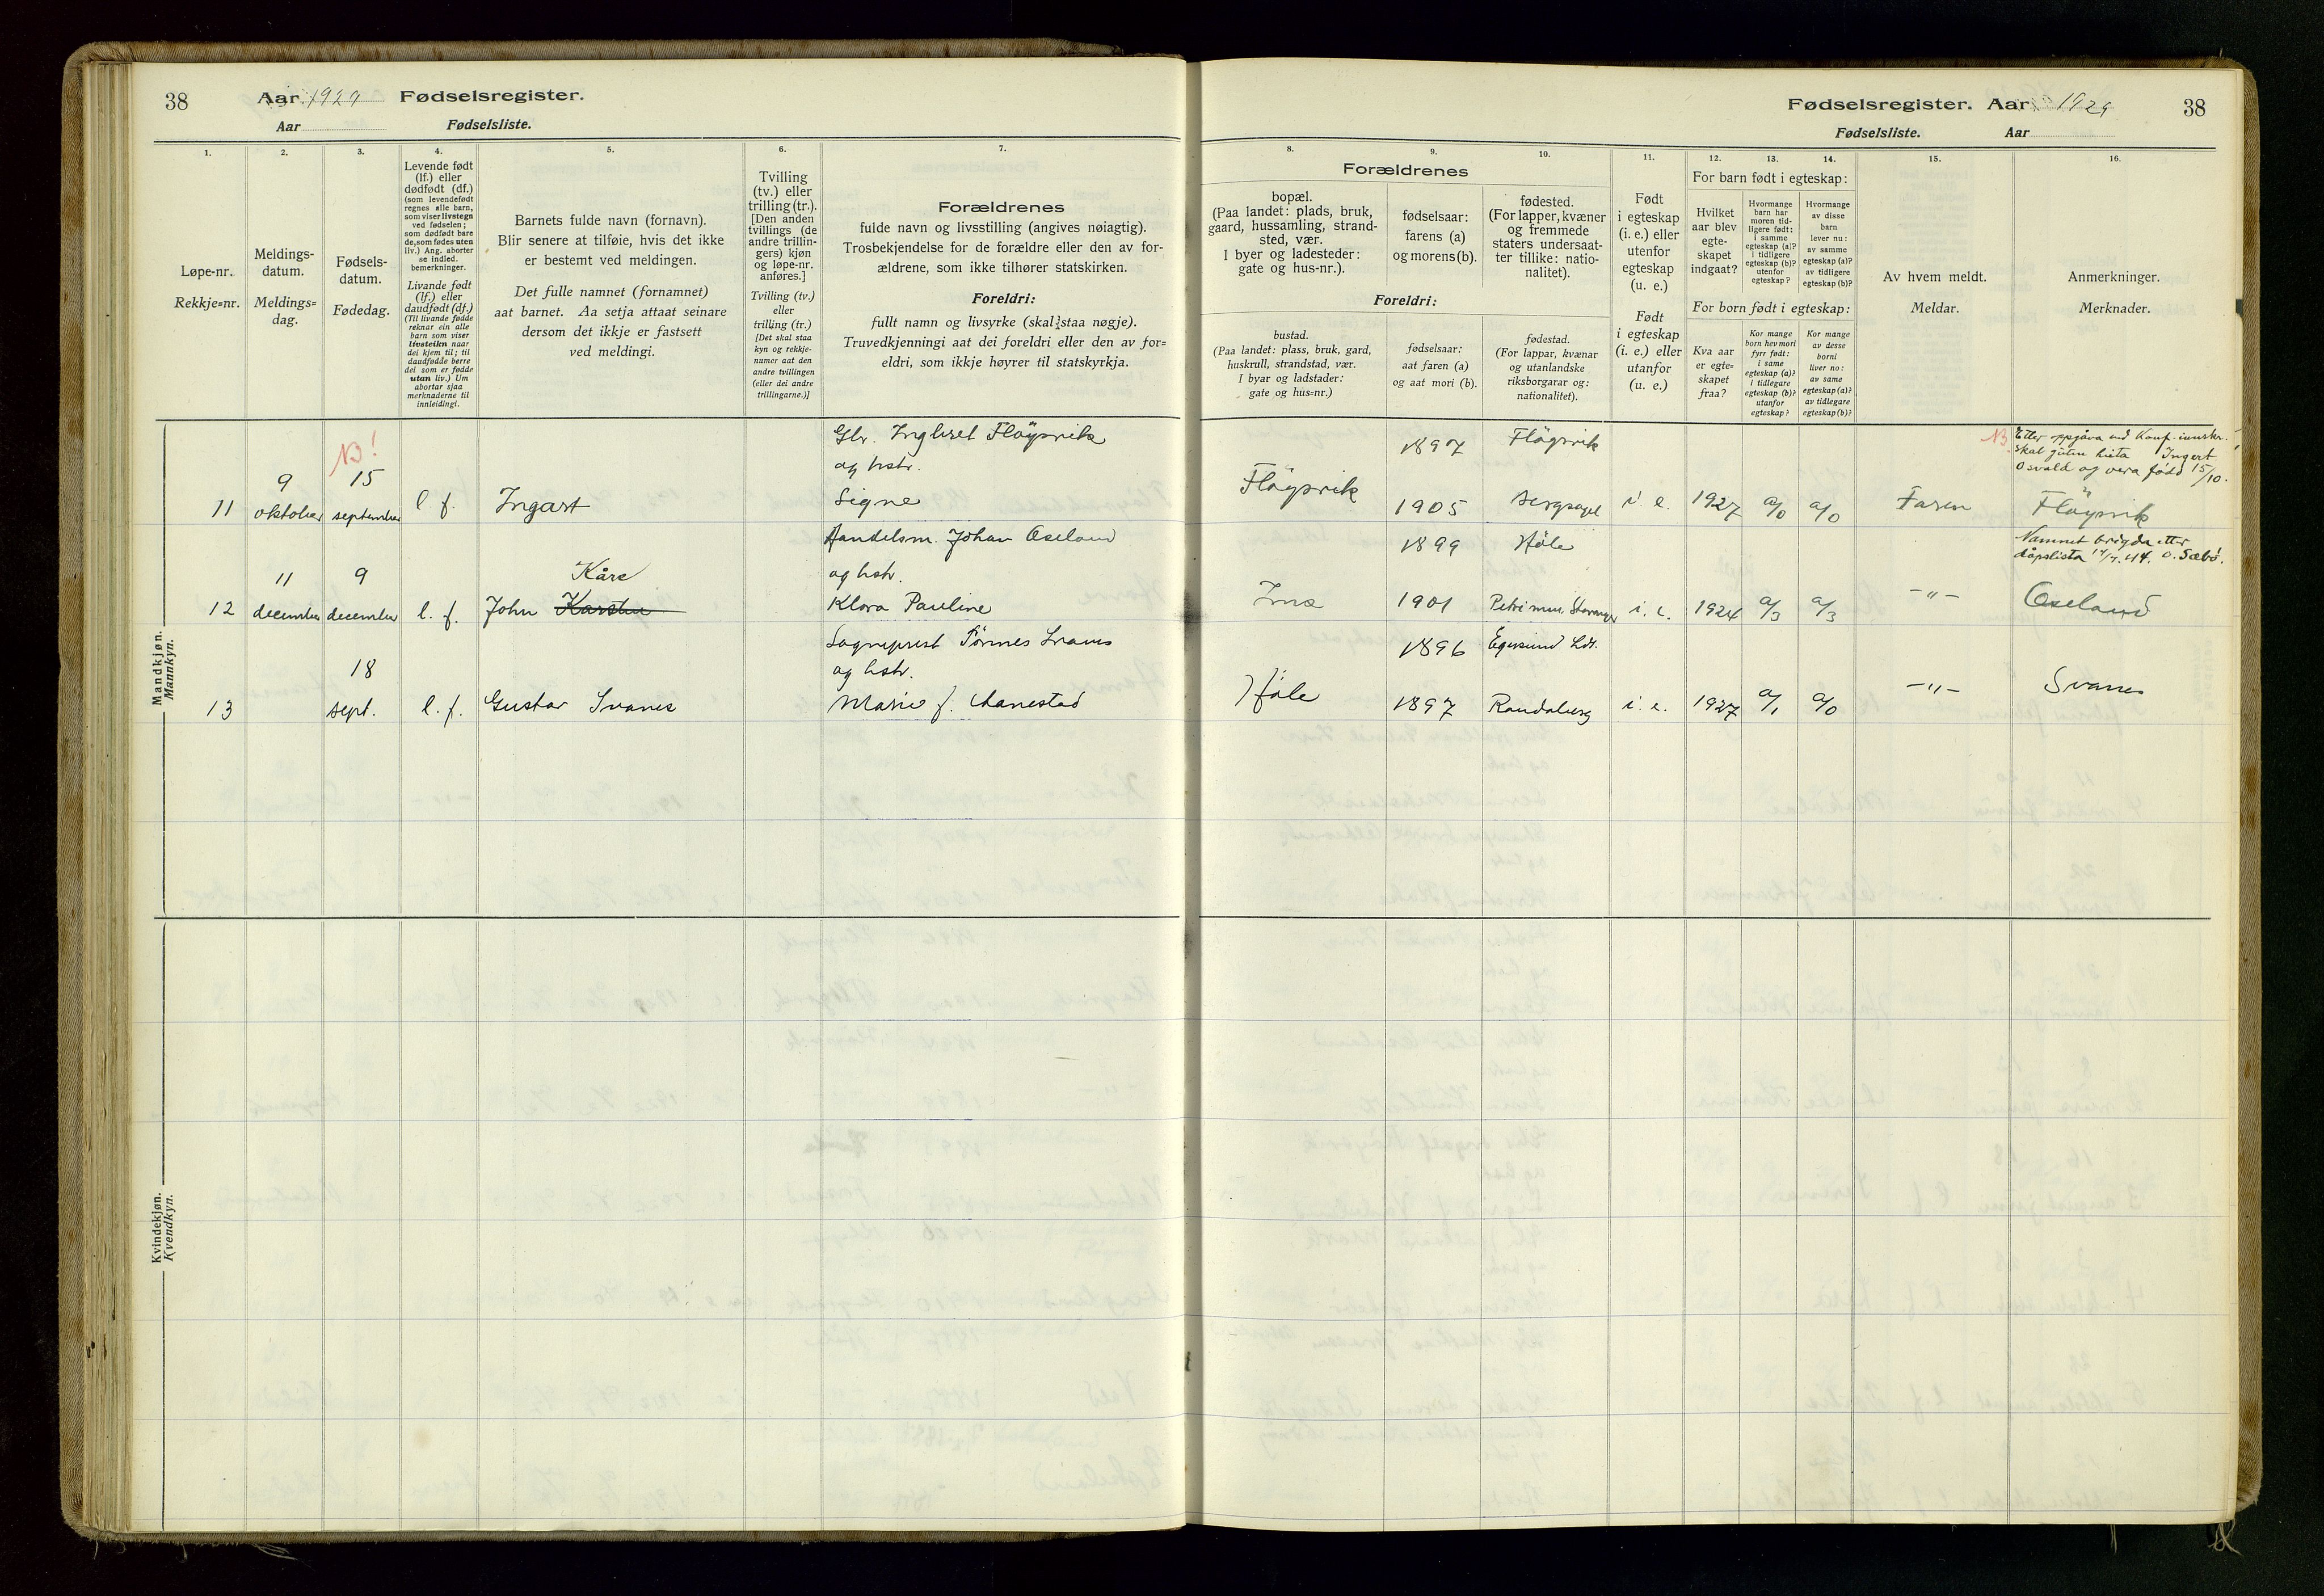 38
Aar 1929 Fødselsregister.
Aar Fødselsliste.
1.
2.
3.
4.
5.
6.
7.
Løpe-nr.
Rekkje=nr.
Meldings-
datum.
Meldings=
dag.
Fødsels-
datum.
Fødedag.
Levende født
(lf.) eller
dødfødt (df.)
(som levendefødt
regnes alle barn,
som viser livstegn
ved fødselen;
som dødfødt bare
de, som fødes uten
liv.) Ang. aborter
se indled.
bemerkninger.
Livande født
(lf.) eller
daudfødt (df.)
(Til livande fødde
reknar ein alle
barn som viser
livsteikn naar
dei kjem til; til
daudfødde berre
dei som er fødde
utan liv.) Um
abortar sjaa
merknaderne til
innleidingi.
Barnets fulde navn (fornavn).
Blir senere at tilføie, hvis det ikke
er bestemt ved meldingen.
Det fulle namnet (fornamnet)
aat barnet. Aa setja attaat seinare
dersom det ikkje er fastsett
ved meldingi.
Tvilling
(tv.) eller
trilling (tr.).
[Den anden
tvillings (de
andre trillin-
gers) kjøn
og løpe-nr.
anføres.]
Tvilling (tv.)
eller
trilling (tr.)
[Det skal staa
kyn og rekkje-
numer aat den
andre tvillingen
(eller dei andre
trillingarne.)]
Forældrenes
fulde navn og livsstilling (angives nøiagtig).
Trosbekjendelse for de forældre eller den av for-
ældrene, som ikke tilhører statskirken.
Foreldri:
fullt namn og livsyrke (skal staa nøgje).
Truvedkjenningi aat dei foreldri eller den av for=
eldri, som ikkje høyrer til statskyrkja.
Mandkjøn.
Mannkyn.
NB!
Gbr. Inghret Fløysvik
og hstr.
9 15
11 oktober september l. f. Ingart Signe
Handelsm. Johan Oseland
11 9 Kåre og hstr.
12 december december l. f. John Karsten Klara Pauline
Sogneprest Tönnes Svanes
18 og hstr.
13 sept. l. f. Gustav Svanes Marie f. Harestad
Kvindekjøn.
Kvendkyn.
Fødselsregister. Aar 1929
38
Fødselsliste. Aar
8.
9.
10.
11.
12.
13.
14.
15.
16.
Forældrenes
bopæl.
(Paa landet: plads, bruk,
gaard, hussamling, strand-
sted, vær.
I byer og ladesteder:
gate og hus-nr.).
fødselsaar:
farens (a)
og morens (b).
fødested.
(For lapper, kvæner
og fremmede
staters undersaat-
ter tillike: natio-
nalitet).
Foreldri:
bustad.
(Paa landet: plass, bruk, gard,
huskrull, strandstad, vær.
I byar og ladstader:
gate og hus=nr.)
fødselsaar:
aat faren (a)
og aat mori (b).
fødestad.
(For lappar, kvænar
og utanlandske
riksborgarar og:
nationalitet).
Født
i egteskap
(i. e.) eller
utenfor
egteskap
(u. e.)
Født
i egteskap
(i. e.) eller
utanfor
(u. e.)
For barn født i egteskap:
Hvilket
aar blev
egte-
skapet
indgaat?
Hvormange
barn har
moren tid-
ligere født:
i samme
egteskap (a)?
i tidligere
egteskap (b)?
utenfor
egteskap?
Hvormange
av disse
barn
lever nu:
av samme
egteskap (a)?
av tidligere
egteskap (b)?
For born født i egteskap:
Kva aar
er egte=
skapet
fraa?
Kor mange
born hev mori
fyrr født:
i same
egteskap (a)?
i tidlegare
egteskap (b)?
utanfor
egteskap?
Kor mange
av desse
borni
liver no:
av same
egteskap (a)?
av tidlegare
egteskap (b)?
Av hvem meldt.
Meldar.
Anmerkninger.
Merknader.
NB Etter oppgåva ved Konf. innskr.
skal guten heita Ingart
Osvald og vera fødd 15/10.
1897 Flöysvik
Flöysvik 1905 Bergsagel i. e. 1927 a/0 a/0 Faren Flöysvik
Namnet brigda etter
dåpslista 14/7.44. O. Sæbö.
1899 Höle
Ims 1901 Petri men. Stavanger i. e. 1924 a/3 a/3 -"- Oseland
1896 Egersund Ldt.
Höle 1897 Randaberg i. e. 1927 a/1 a/0 -"- Svanes